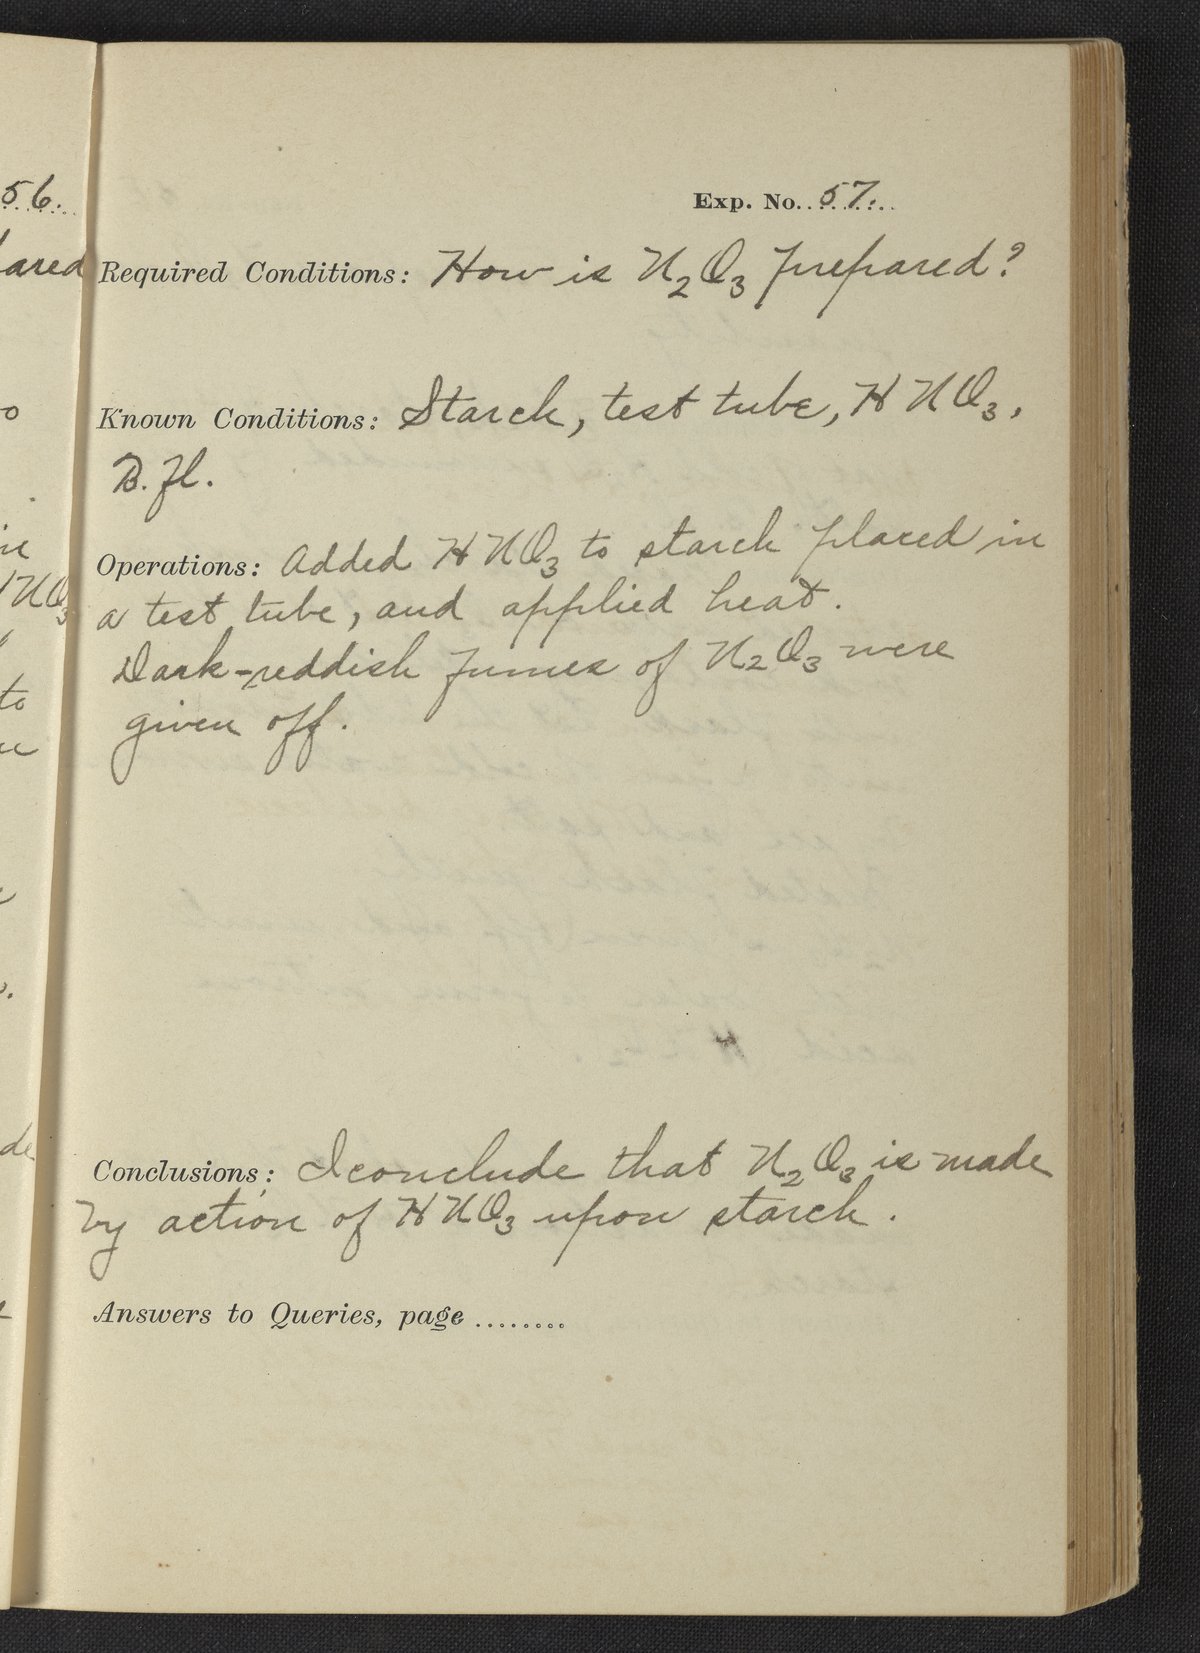 56.
Exp. No. 57.
ared
Required Conditions: How is N2O3 prepared?
Known Conditions: Starch, test tube, HNO3,
B. Fl.
Operations: Added HNO3 to starch placed in
a test tube, and applied heat.
Dark-reddish fumes of N2O3 were
given off.
Conclusions: I conclude that N2O3 is made
by action of HNO3 upon starch.
Answers to Queries, page ........